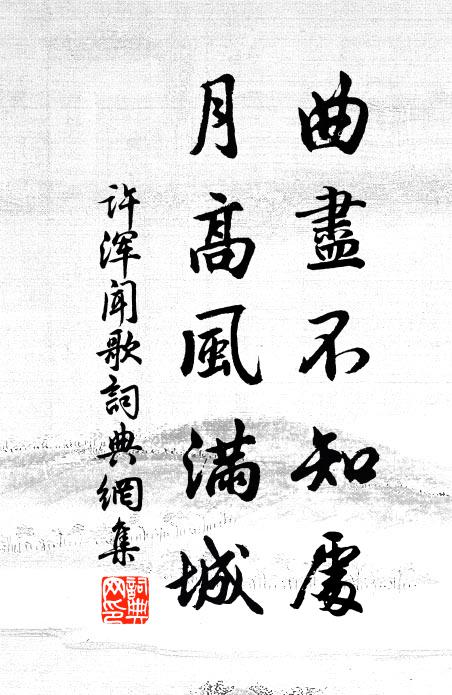 曲盡不知處
月高風滿城
许浑闻歌詞典網集
詞典
网印